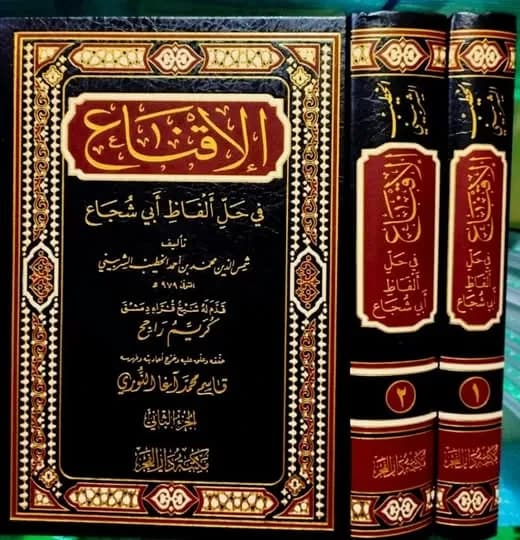 الإقناع
في حل ألفاظ أبي شجاع
تأليف
شمس الدين محمد بن أحمد الخطيب الشربيني
المتوفى ٩٧٩ هـ
قدم له شيخ قراء دمشق
كريم راجح
حققه وعلق عليه وخرج أحاديثه وفهرسه
قاسم محمد آغا النوري
الجزء الثاني
مكتبة دار الفجر
الخطيب الشربيني
الإقناع
في حل
ألفاظ
أبي شجاع
٢
مكتبة دار الفجر
الخطيب الشربيني
الإقناع
في حل
ألفاظ
أبي شجاع
١
مكتبة دار الفجر